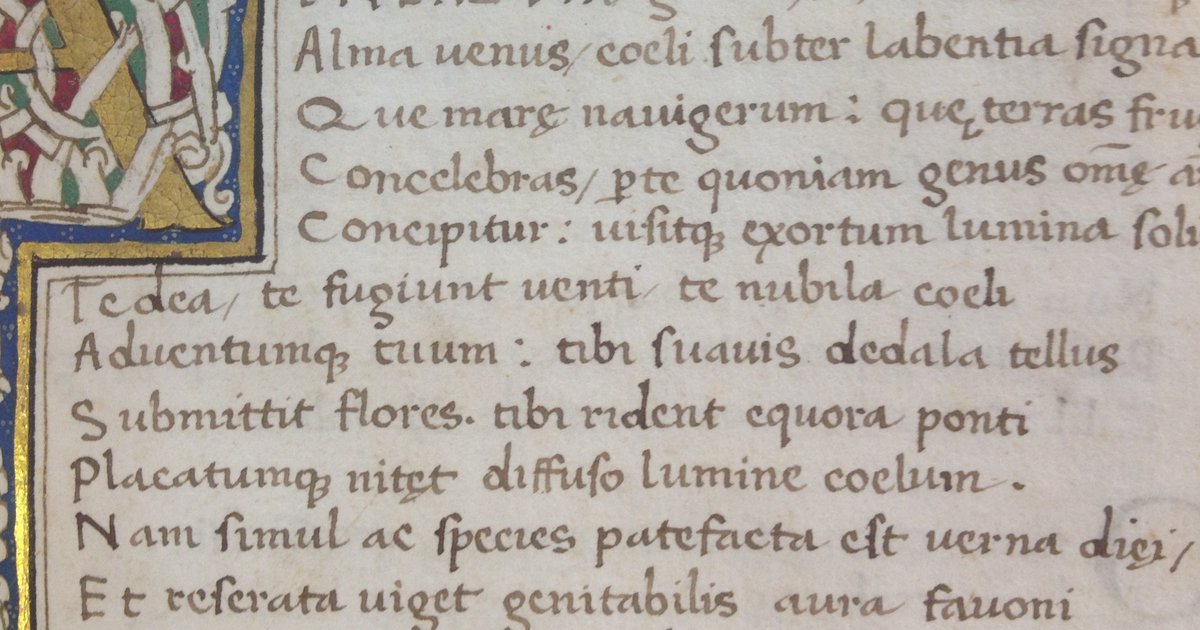 Alma uenus/ coeli subter labentia signa
Que marę nauigerum: quę terras fru
Concelebras/ ꝑte quoniam genus om̅ę
Concipitur: uisitqꝫ exortum lumina soli
Te dea/ te fugiunt uenti/ te nubila coeli
Aduentumqꝫ tuum: tibi suauis dedala tellus
Submittit flores. tibi rident equora ponti
Placatumqꝫ nitęt diffuso lumine coelum.
Nam simul ac species patefacta est uerna dięi/
Et reserata uiget genitabilis aura fauoni